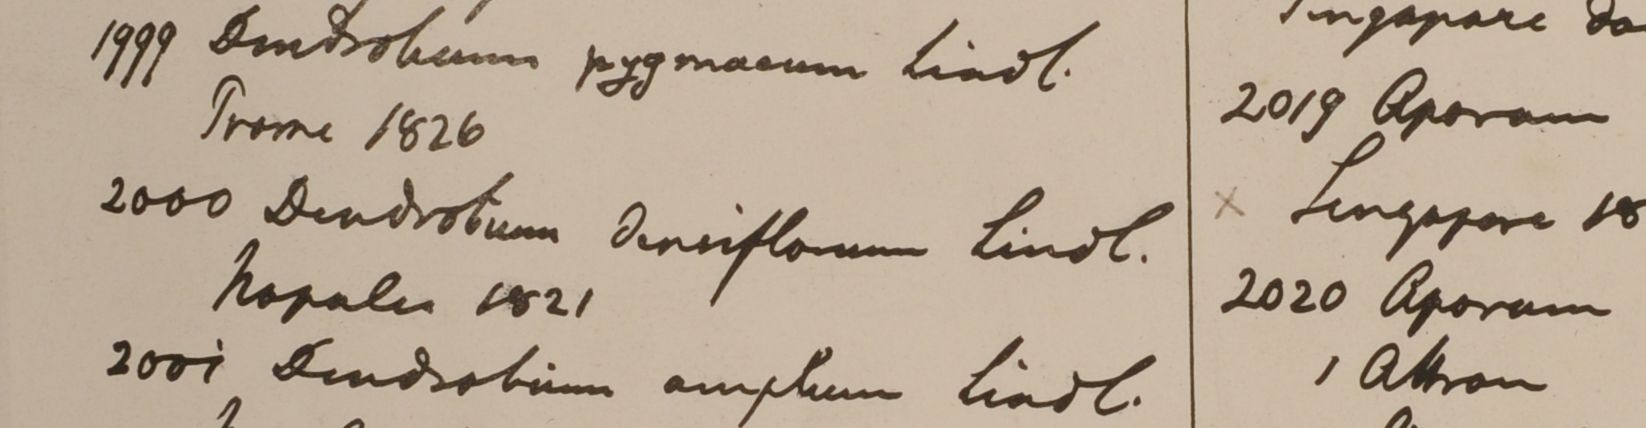 1999 Dendrobium pygmaeum Lindl.
Prome 1826
2000 Dendrobium densiflorum Lindl.
Napalia 1821
2001 Dendrobium amplum Lindl.
Singapore
2019 Aporum
x Singapore 18
2020 Aporum
1 Attran